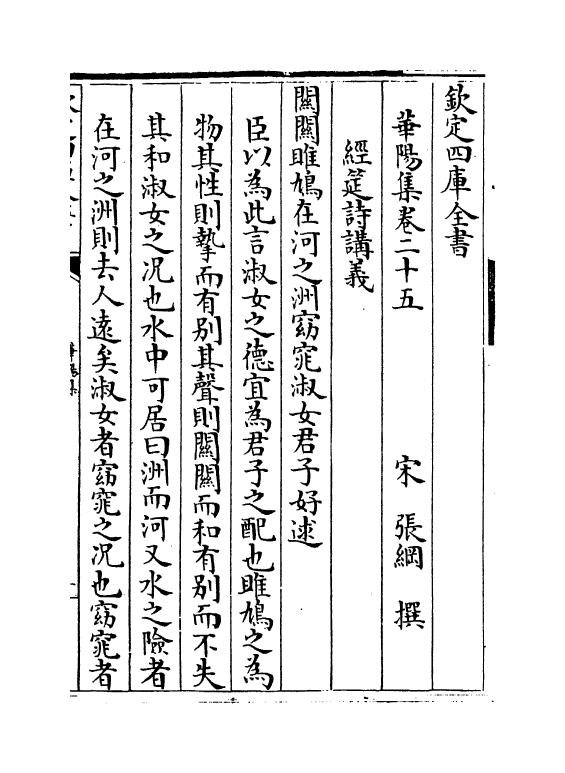 欽定四庫全書
華陽集卷二十五
宋 張綱 撰
經筵詩講義
關關雎鳩在河之洲窈窕淑女君子好逑
臣以為此言淑女之德宜為君子之配也雎鳩之為
物其性則摯而有别其聲則關關而和有别而不失
其和淑女之况也水中可居曰洲而河又水之險者
在河之洲則去人遠矣淑女者窈窕之况也窈窕者
華陽集